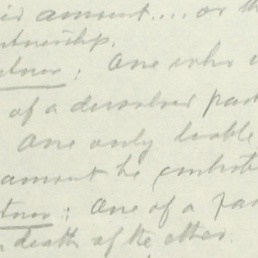 amount.... or th
tnership.
tner: One who i
of a dissolved part
One only liable
amount he contribut
tner: One of a par
death of the other.